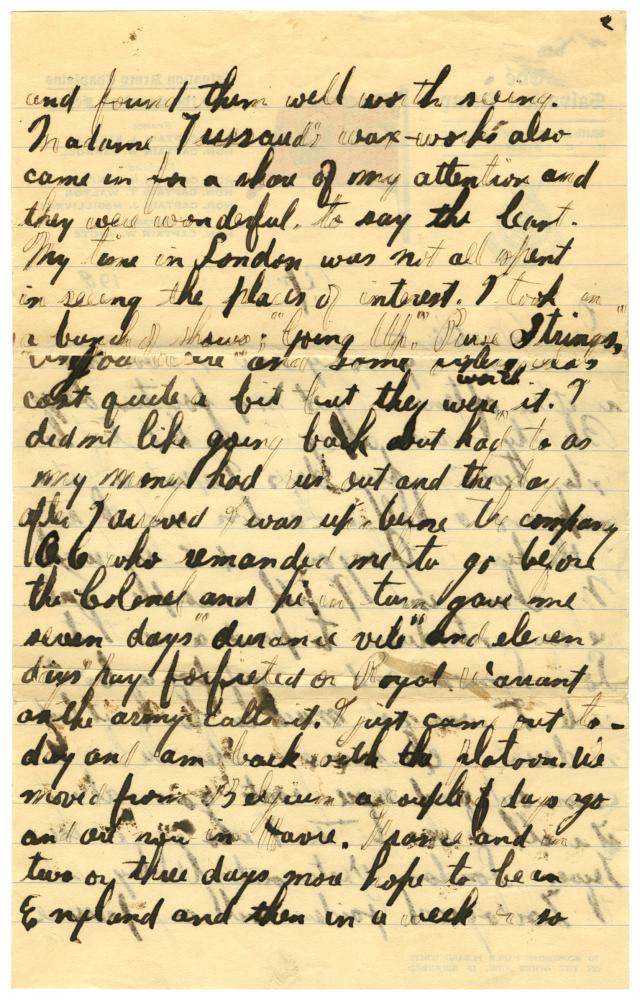 2
and found them well worth seeing.
Madame Tussaud's wax-works also
came in for a share of my attention and
they were wonderful. to say the least.
My time in London was not all spent
in seeing the places of interest. I took in
a bunch of shows; "Going Up," "Purse Strings,"
and some
worth
cost quite a bit but they were it. I
didn't like going back but had to as
my money had run out and the day
after I arrived I was up before the company
O.C who remanded me to go before
the Colonel and he in turn gave me
seven days "durance vile" and eleven
days' pay forfieted or Royal Warrant
as the army calls it. I just came out to-
day and am back with the platoon. We
moved from Belgium a couple of days ago
and are now in Havre. France and in
two or three days more hope to be in
England and then in a week or so